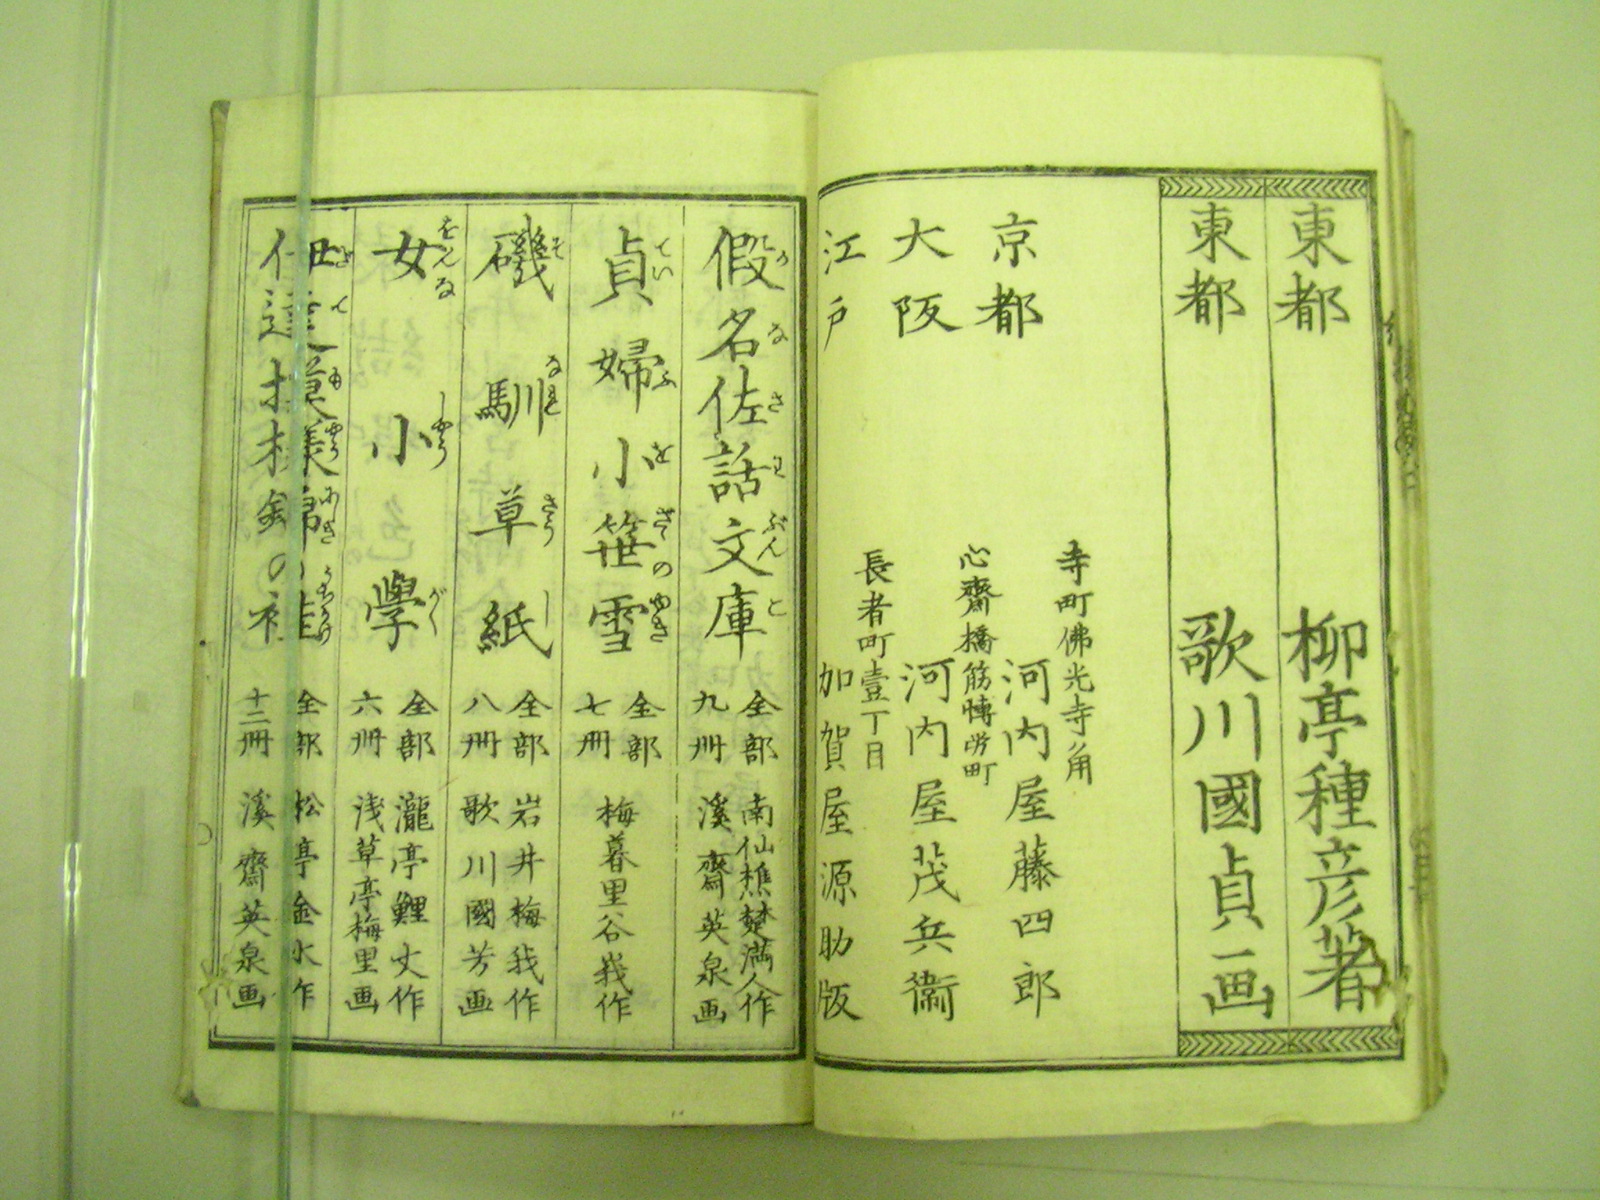 東都 柳亭種彦著
東都 歌川國貞画
京都 寺町佛光寺角 河内屋藤四郎
大阪 心齋橋筋博労町 河内屋茂兵衞
江戸 長者町壹丁目 加賀屋源助版
假名佐話文庫 全部九冊 南仙樵楚満人作 溪齋英泉画
貞婦小笹雪 全部七冊 梅暮里谷峩作
磯馴草紙 全部八冊 岩井梅我作 歌川國芳画
女小學 全部六冊 瀧亭鯉丈作 浅草亭梅里画
伊達模様錦の袿 全部十二冊 松亭金水作 溪齋英泉画